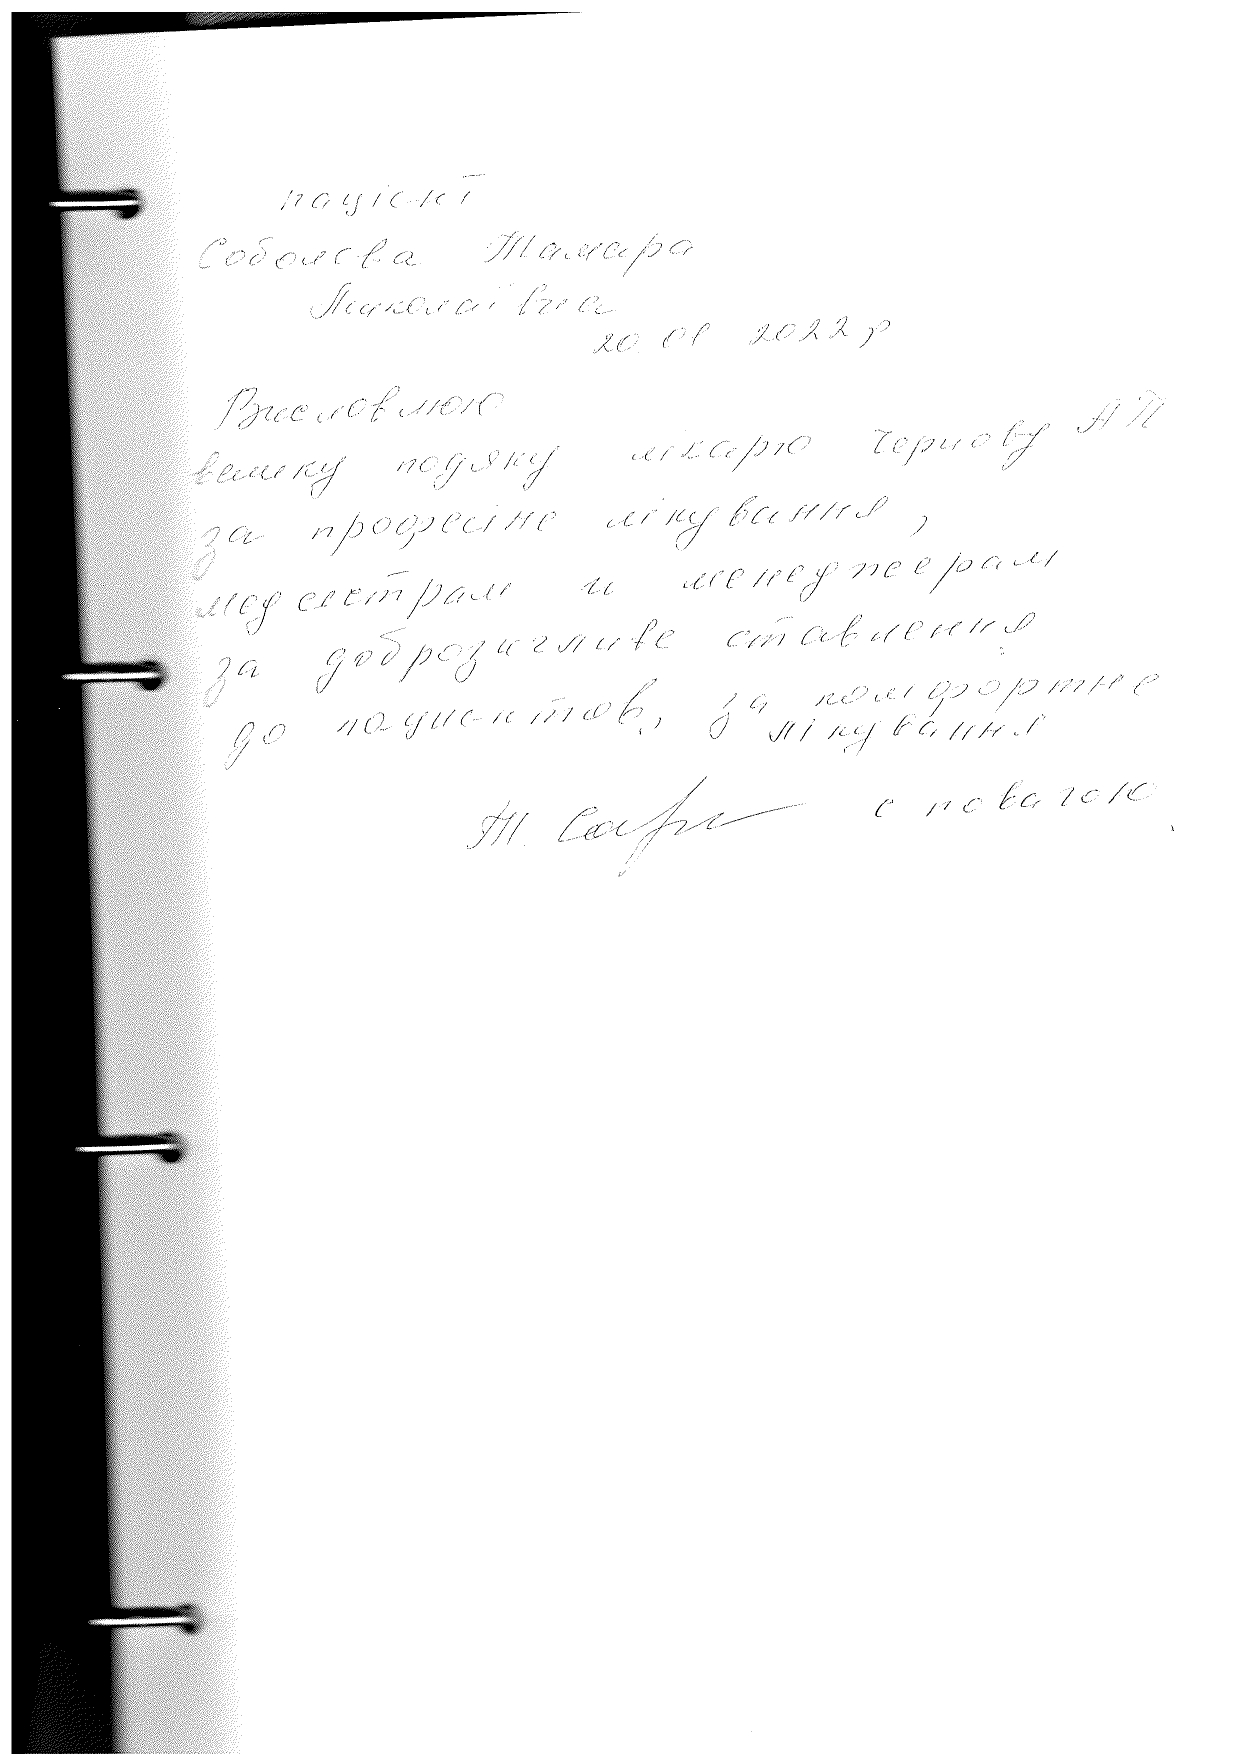 пацієнт
Соболєва Тамара
Миколаївна
20.01 2022 р
Висловлюю
велику подяку лікарю Чернову А П
за професійне лікування,
медсестрам и менеджерам
за доброзичливе ставлення
до пациентов, за комфортне
лікування
Т. с повагою